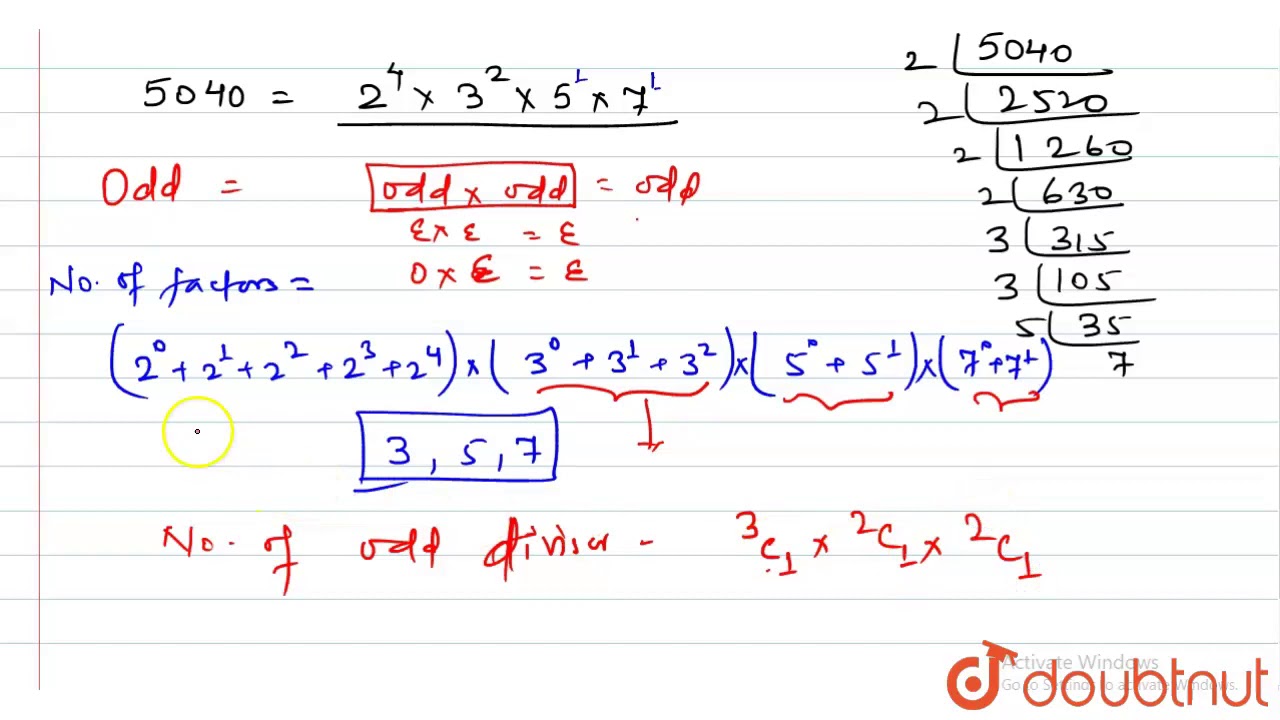 5040 = 2⁴ × 3² × 5¹ × 7¹
Odd = odd × odd = odd
ε × ε = ε
0 × ε = ε
No. of factors =
(2⁰ + 2¹ + 2² + 2³ + 2⁴) × (3⁰ + 3¹ + 3²) × (5⁰ + 5¹) × (7⁰ + 7¹)
3, 5, 7
No. of odd divisor - ³C₁ × ²C₁ × ²C₁
2 5040
2 2520
2 1260
2 630
3 315
3 105
5 35
7
Activate Windows
Go to Settings to activate Windows.
doubtnut